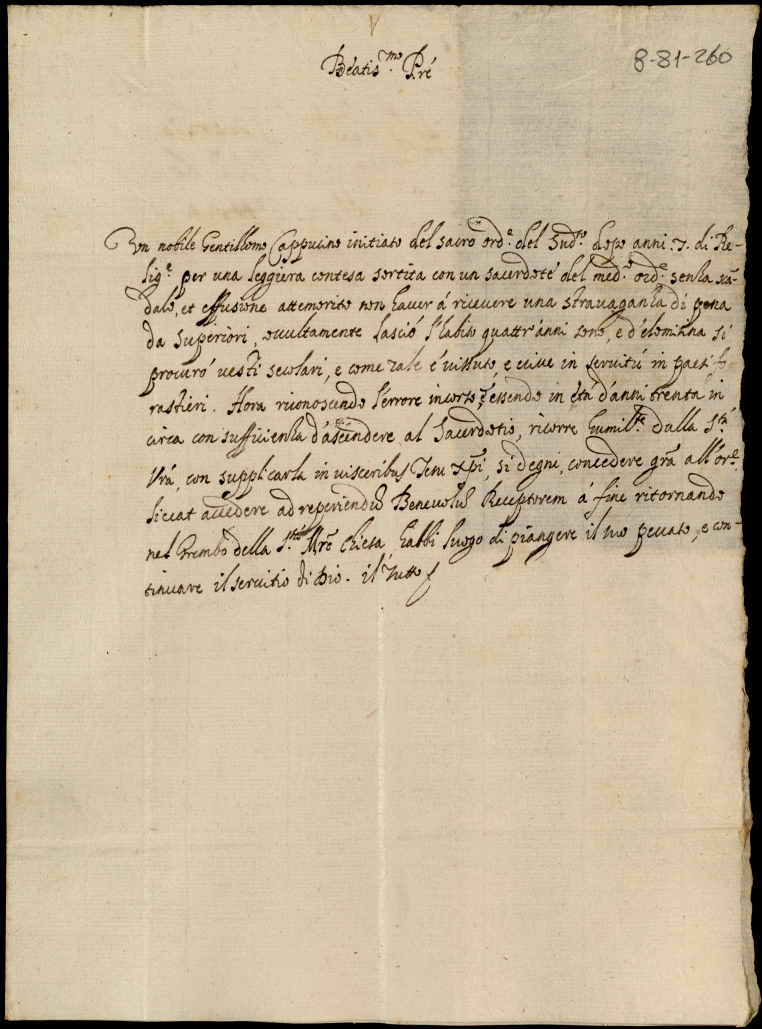 Beatis.mo Pre
8-81-260
Un nobile Gentillomo Cappucino initiato del sacro ord.e del Sud.to dopo anni 7. di Re-
lig.e per una leggiera contesa sortita con un sacerdote del med.o ord.e senza scã-
dalo, et effusione attemorito non haver á ricevere una stravaganza di pena
da superiori, occultamente lasció l'habito quattr'anni sono, e d'elemosina si
procuró vesti secolari, e come tale é vissuto, e vive in servitú in paesi fo-
rastieri. Hora riconoscendo l'errore incorso, essendo in etá d'anni trenta in
circa con sufficienza d'ascendere al Sacerdotio, ricorre humil.te dalla S.tá
Vrá, con supplicarla in visceribus Jesu Xpi, si degni, concedere grã all'ore
liceat accedere ad reperiendũ Benevolũ Receptorem á fine ritornando
nel Grembo della S.ta Mrẽ Chiesa, habbi luogo di piangere il suo peccato, e con-
tinuare il servitio di Dio. il tutto